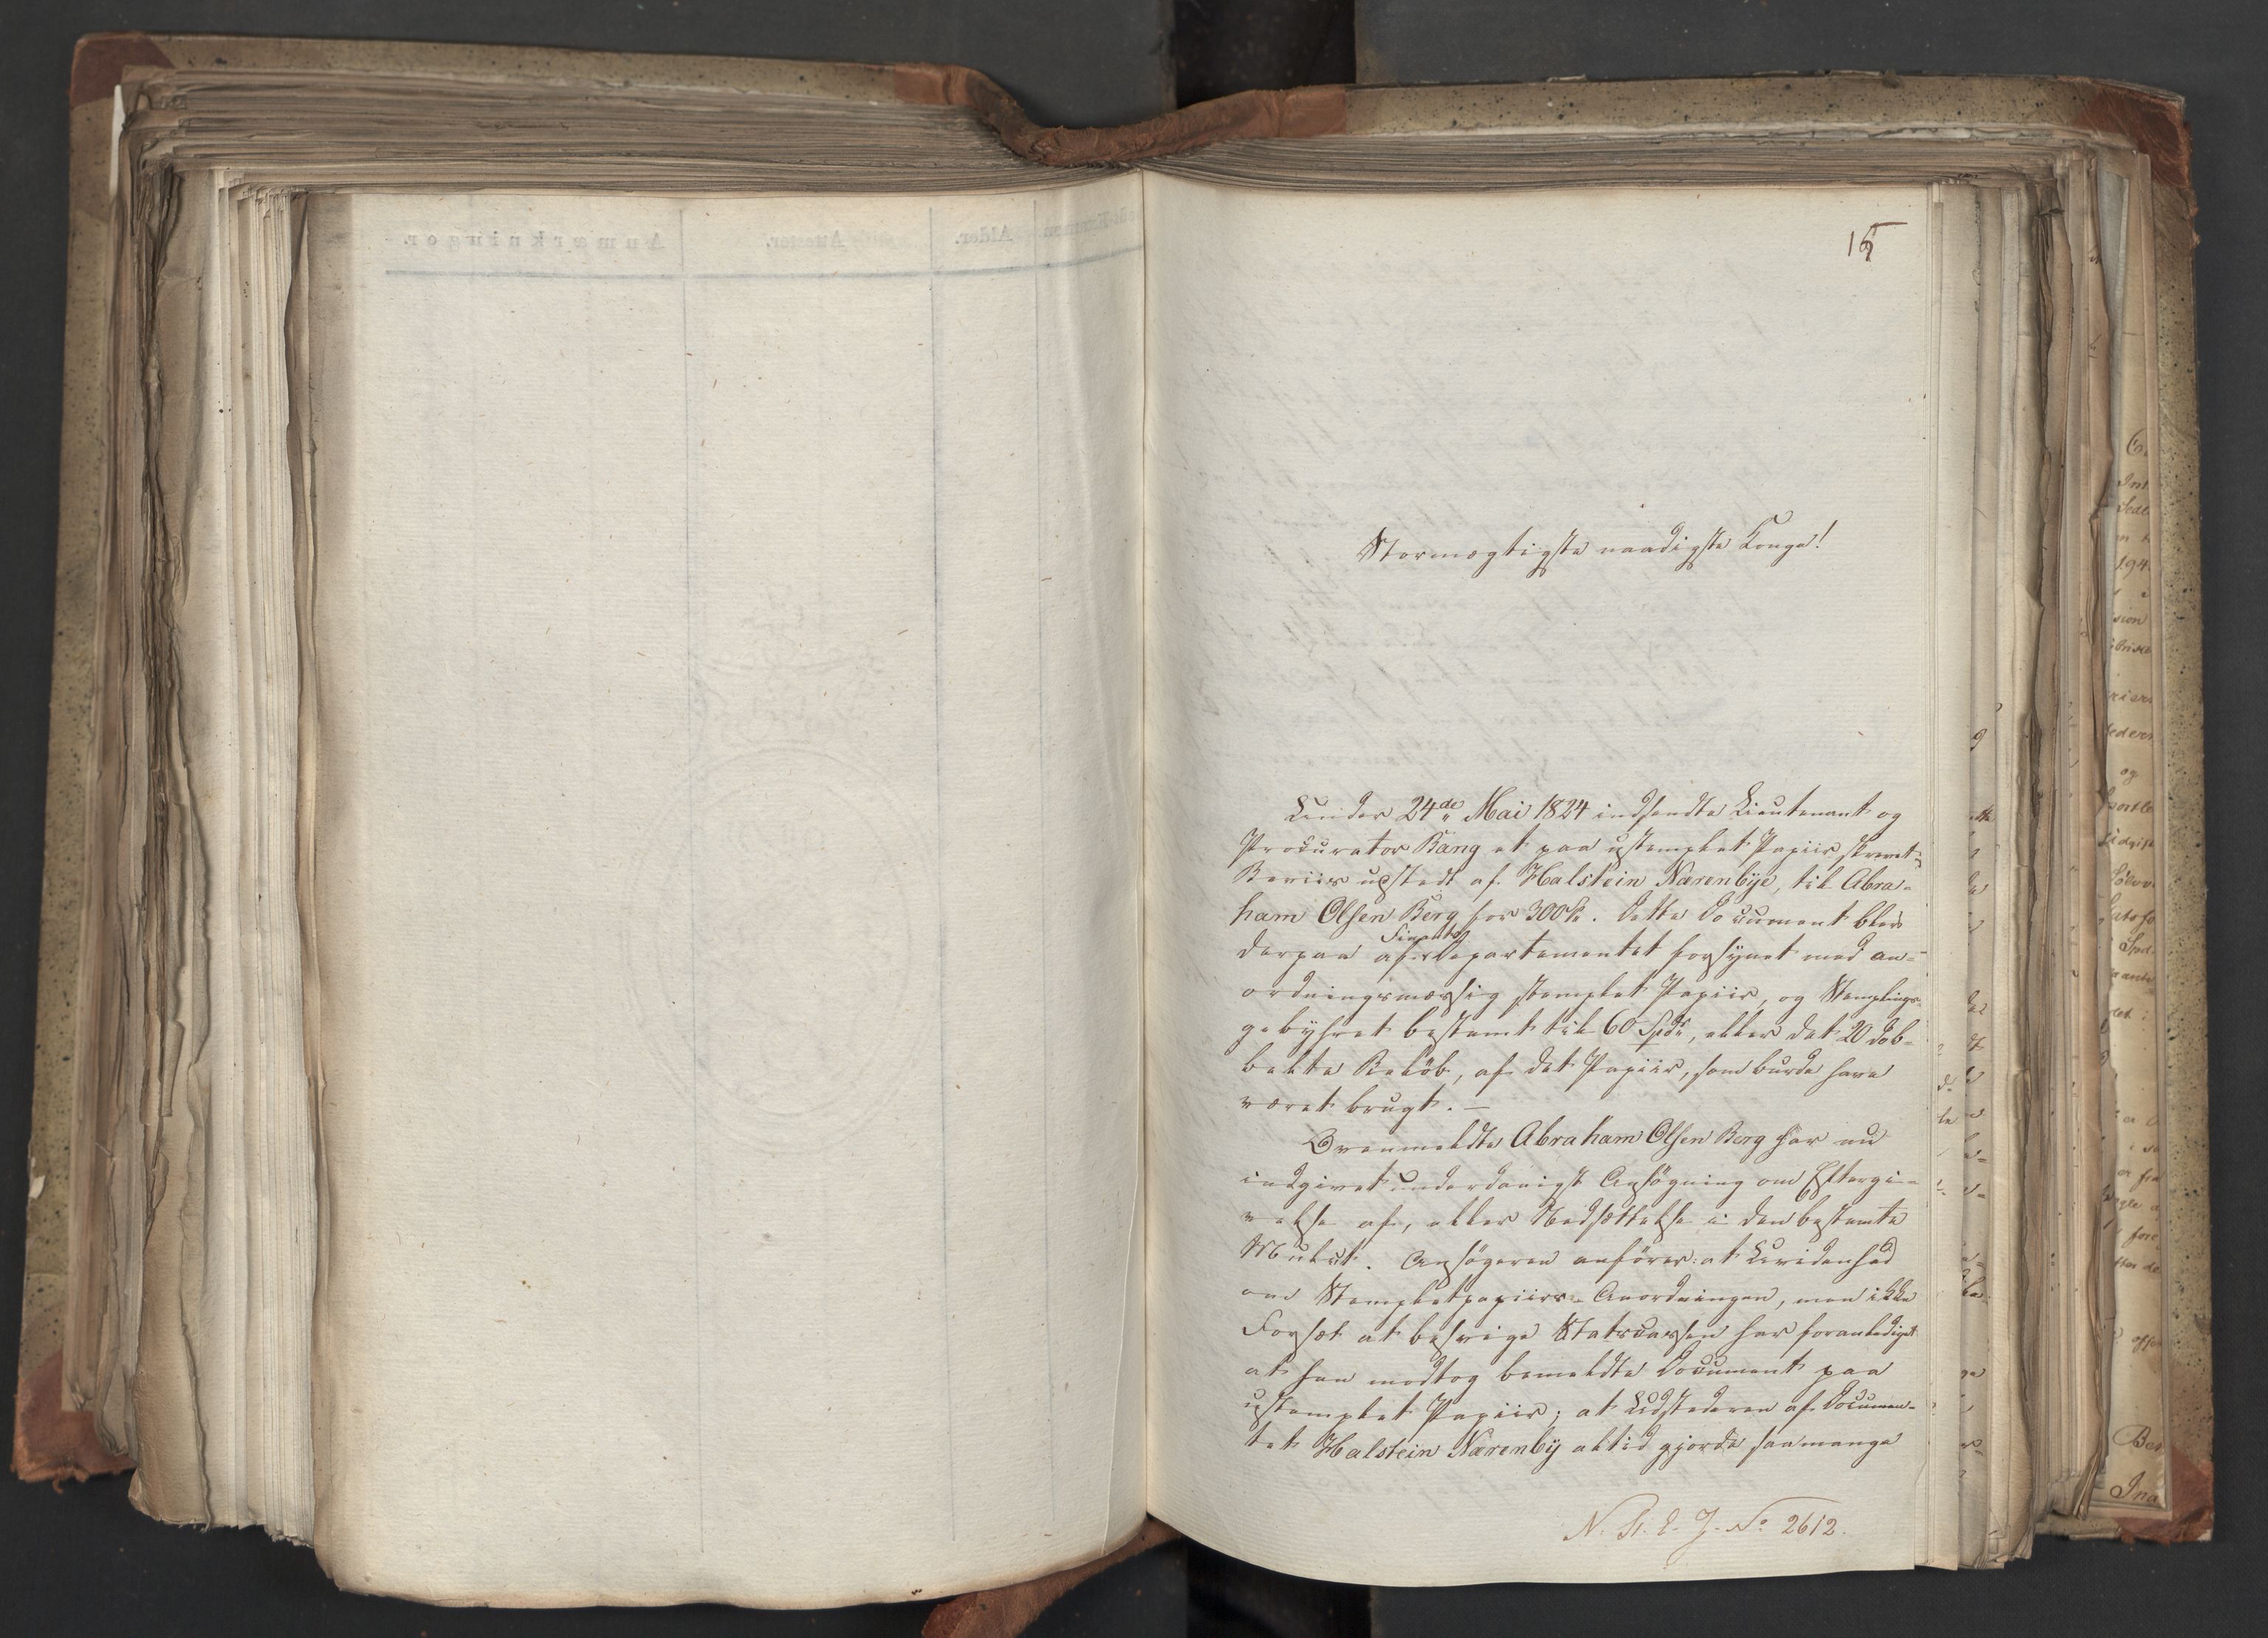 15
Stormægtigste naadigste Konge!
Under 24de Mai 1824 indsendte Lieutenant og
Procurator Bang et paa ustemplet Papiir skrevet
Beviis udstedt af Halstein Nærenbye, til Abra-
ham Olsen Berg for 300
Dette Document blev
Finants
derpaa af Departementet forsynet med an-
ordningsmæssig stemplet Papiir, og Stemplings-
gebyhret bestemt til 60 Spdr, eller det 20 dob-
belte Beløb, af det Papiir, som burde have
været brugt. —
Ovenmeldte Abraham Olsen Berg har nu
indgivet underdanigst Ansøgning om Eftergi-
velse af, eller Nedsættelse i den bestemte
Mulct. Ansøgeren anfører: at Uvidenhed
om Stempletpapiirs-Anordningen, men ikke
Forsæt at besvige Statscassen har foranlediget
at han modtog bemeldte Document paa
ustemplet Papiir; at Udstederen af Documen-
tet Halstein Nærenby altid gjorde saamange
J. No 2612.